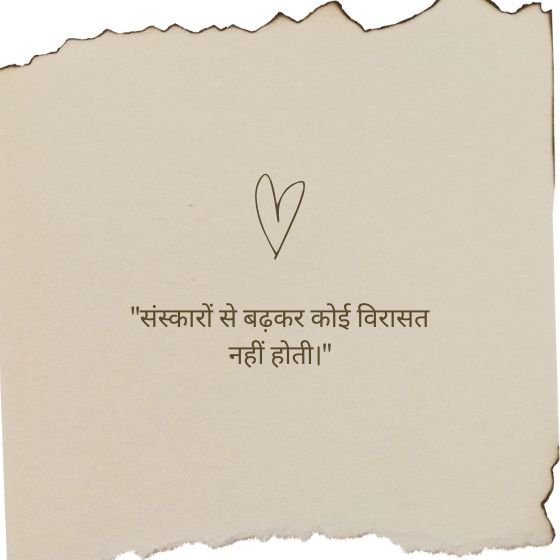 "संस्कारों से बढ़कर कोई विरासत
नहीं होती।"